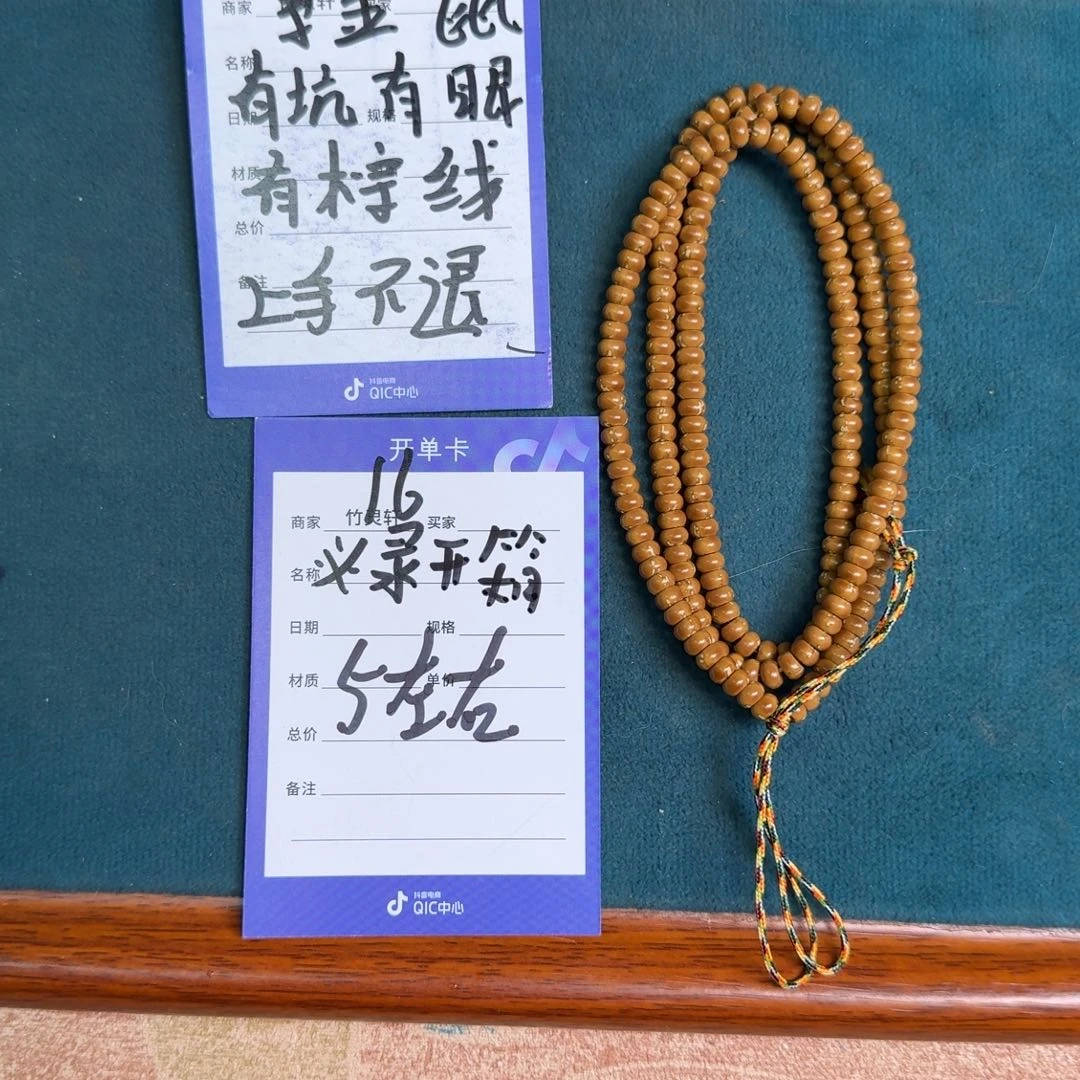 商家 轩
金 鼠
名称
有坑有眼
日 规格
材质
有 线
总价
备注
上手不退
抖音电商
QIC中心
开单卡
16
商家 竹灵轩 买家
名称
必录开
日期 规格
5左右
材质 单价
总价
备注
抖音电商
QIC中心